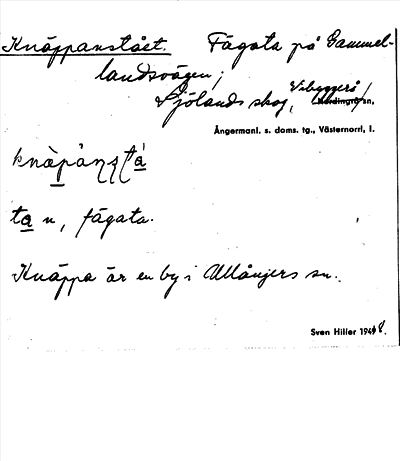 Knäppanståêt. Fägata på Gammel-
landsvägen,
Sjölands skog, Vibyggerå
Nordingrå sn,
Ångermanl. s. doms. tg., Västernorrl. l.
tan, fägata.
Knäppa är en by i Ullångers sn.
Sven Hiller 1948.